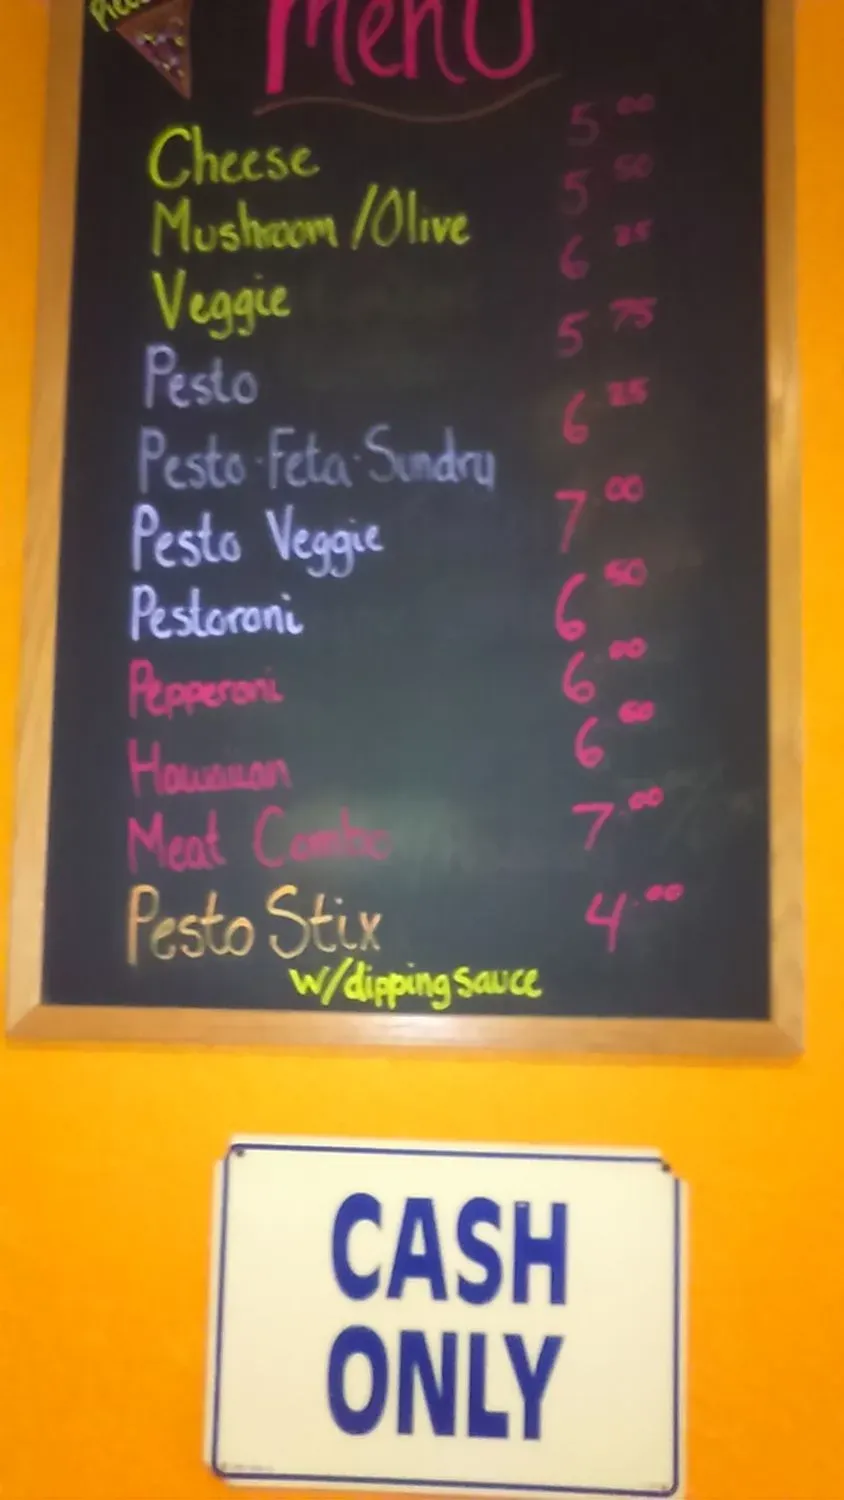 Menu
Cheese 5.00
Mushroom/Olive 5.50
Veggie 6.25
Pesto 5.75
Pesto-Feta-Sundry 6.25
Pesto Veggie 7.00
Pestoroni 6.50
Pepperoni 6.00
Hawaiian 6.60
Meat Combo 7.00
Pesto Stix 4.00
w/dipping sauce
CASH
ONLY